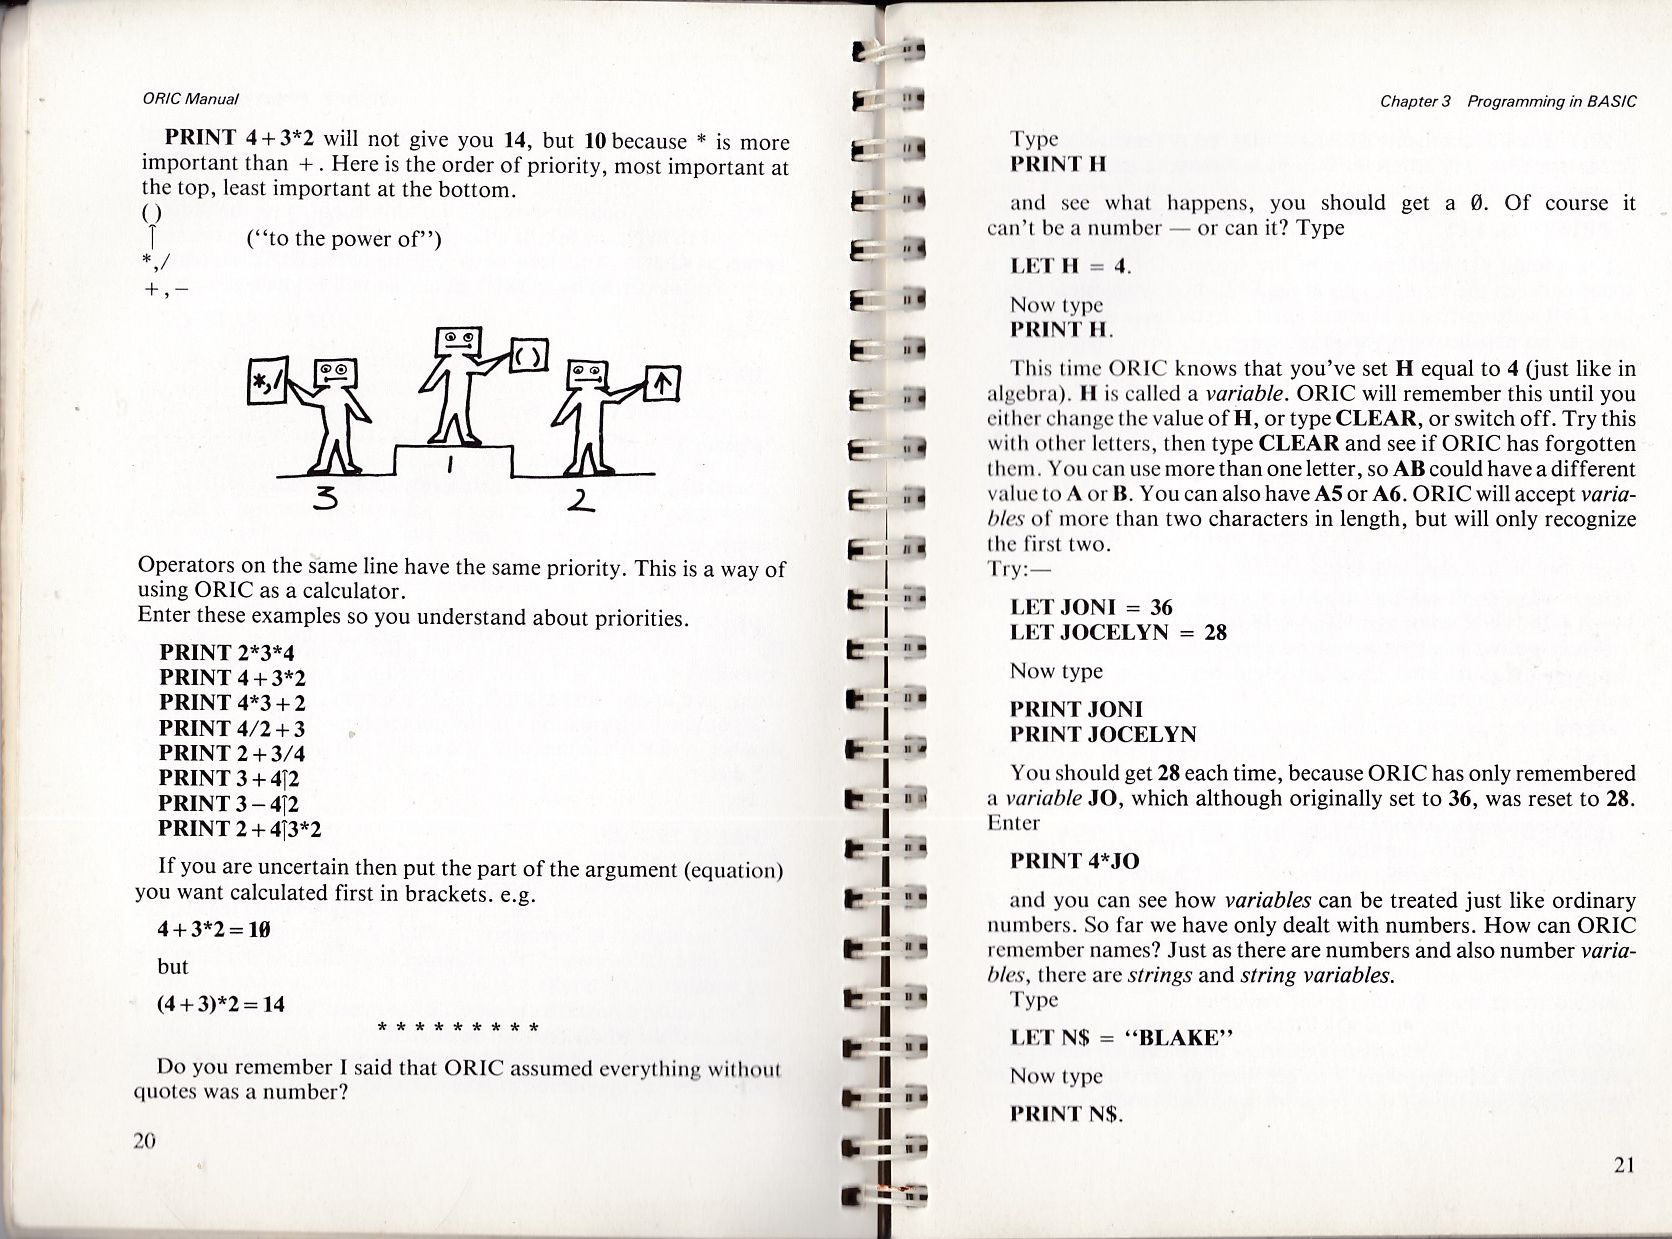 ORIC Manual
PRINT 4+3*2 will not give you 14, but 10 because * is more
important than +. Here is the order of priority, most important at
the top, least important at the bottom.
()
↑ (“to the power of”)
*,/
+,−
*,/
( )
↑
1
3
2
Operators on the same line have the same priority. This is a way of
using ORIC as a calculator.
Enter these examples so you understand about priorities.
PRINT 2*3*4
PRINT 4+3*2
PRINT 4*3+2
PRINT 4/2+3
PRINT 2+3/4
PRINT 3+4↑2
PRINT 3−4↑2
PRINT 2+4↑3*2
If you are uncertain then put the part of the argument (equation)
you want calculated first in brackets. e.g.
4+3*2=10
but
(4+3)*2=14
* * * * * * * * *
Do you remember I said that ORIC assumed everything without
quotes was a number?
20
Chapter 3 Programming in BASIC
Type
PRINT H
and see what happens, you should get a 0. Of course it
can’t be a number — or can it? Type
LET H = 4.
Now type
PRINT H.
This time ORIC knows that you’ve set H equal to 4 (just like in
algebra). H is called a variable. ORIC will remember this until you
either change the value of H, or type CLEAR, or switch off. Try this
with other letters, then type CLEAR and see if ORIC has forgotten
them. You can use more than one letter, so AB could have a different
value to A or B. You can also have A5 or A6. ORIC will accept varia-
bles of more than two characters in length, but will only recognize
the first two.
Try:—
LET JONI = 36
LET JOCELYN = 28
Now type
PRINT JONI
PRINT JOCELYN
You should get 28 each time, because ORIC has only remembered
a variable JO, which although originally set to 36, was reset to 28.
Enter
PRINT 4*JO
and you can see how variables can be treated just like ordinary
numbers. So far we have only dealt with numbers. How can ORIC
remember names? Just as there are numbers and also number varia-
bles, there are strings and string variables.
Type
LET N$ = “BLAKE”
Now type
PRINT N$.
21